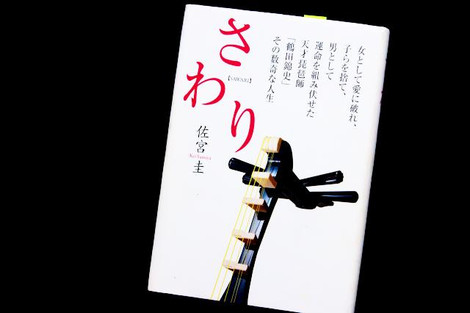 女として愛に破れ、
子らを捨て、
男として
運命を組み伏せた
天才琵琶師
「鶴田錦史」
その数奇な人生
さわり
【SAWARI】
佐宮 圭
Kei Samiya